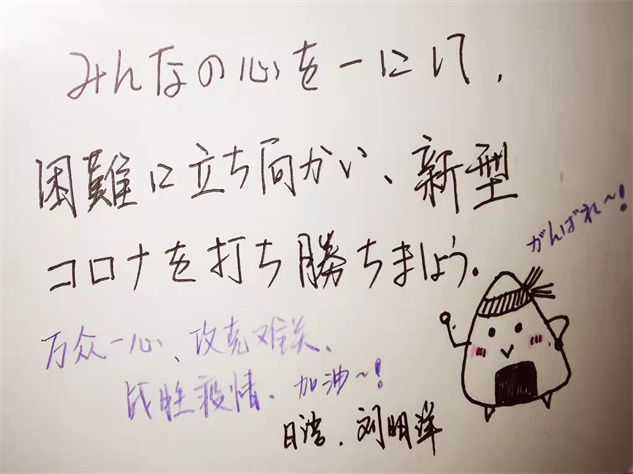 みんなの心を一にして,
困難に立ち向かい、新型
コロナを打ち勝ちましょう。
がんばれ〜!
万众一心、攻克难关、
战胜疫情、加油〜!
日浩、刘明洋